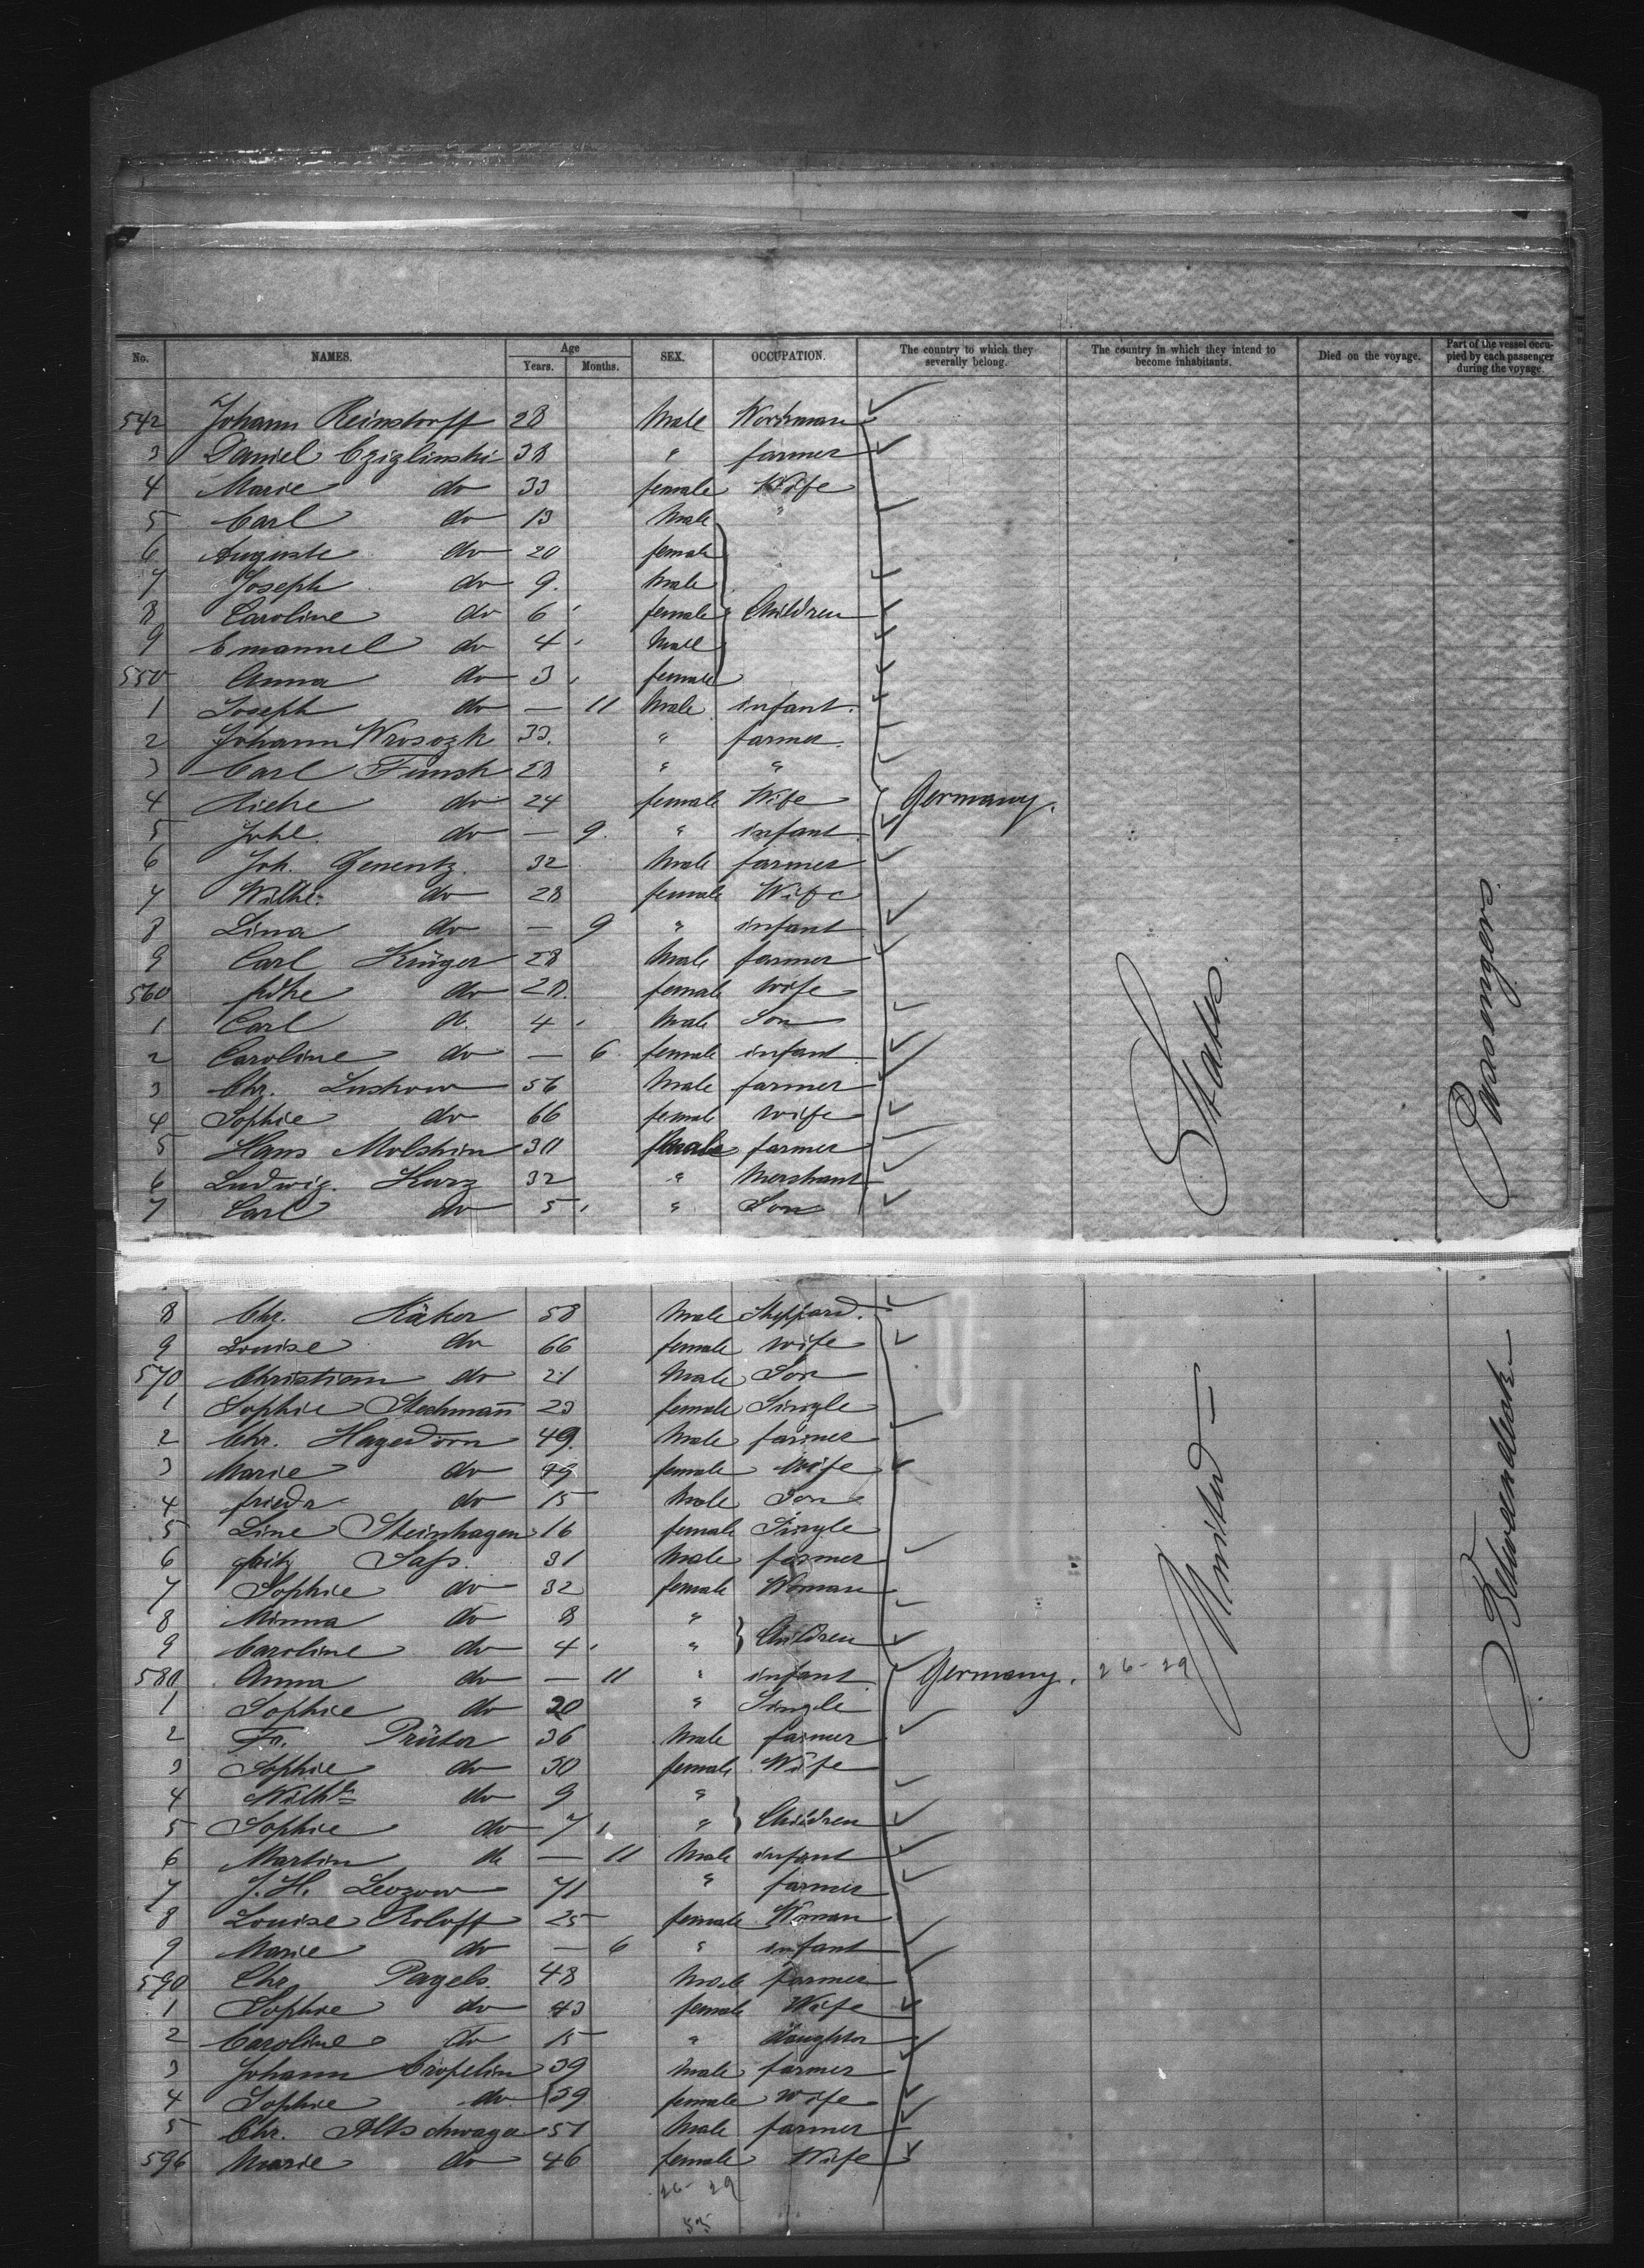 No. NAMES. Age Years. Months. SEX. OCCUPATION. The country to which they severally belong. The country in which they intend to become inhabitants. Died on the voyage. Part of the vessel occupied by each passenger during the voyage.
542 Johann Reinstorff 28 Male Workman
3 Daniel Cziglinski 38 " farmer
4 Marie do 33 female Wife
5 Carl do 13 Male "
6 Auguste do 20 female
7 Joseph do 9. Male
8 Caroline do 6 female Children
9 Emanuel do 4 Male
550 Anna do 3 female
1 Joseph do — 11 Male infant.
2 Johann Wrosozk 33. " farmer.
3 Carl Funsk 28 " "
4 Rieke do 24 female Wife Germany.
5 Johe. do — 9. " infant
6 Joh. Genentz. 32 Male farmer
7 Wilhe. do 28 female Wife
8 Lina do — 9 " infant
9 Carl Krüger 28 Male farmer
560 do 28. female wife
1 Carl do. 4 Male Son
2 Caroline do — 6. female infant.
3 Chr. Luskow 56 Male farmer
4 Sophie do 66 female wife
5 Hans Molskin 30 Male farmer
6 Ludwig. Kurz 32 " Merchant
7 Carl do 5 " Son
8 Chr. Käker 58 Male Sheppard.
9 Louise do 66 female wife
570 Christian do 21 Male Son
1 Sophie Stechmañ 23 female Single
2 Chr. Hagedorn 49. Male farmer
3 Marie do 49 female Wife
4 friedr do 15 Male Son
5 Line Steinhagen 16 female Single
6 fritz Sass. 31 Male farmer
7 Sophie do 32 female Woman
8 Minna do 8 "
9 Caroline do 4 " Children
580 Anna do — 11 " infant Germany. 26-29
1 Sophie do 20 " Single
2 Fr. Prüter 36 Male farmer
3 Sophie do 30 female Wife
4 Wilhe do 9 "
5 Sophie do 7 " Children
6 Martin do — 11 Male infant
7 J. H. Levzow 71 " farmer
8 Louise Roloff 25 female Woman
9 Marie do — 6 " infant
590 Chr. Pagels. 48 Male farmer
1 Sophie do 43 female Wife
2 Caroline do 15 " daughter
3 Johann Cropelin 39 Male farmer
4 Sophie do 39 female wife
5 Chr. Altschwager 51 Male farmer
596 Marie do 46 female Wife
United States.
Betweendeck Passengers.
26-29